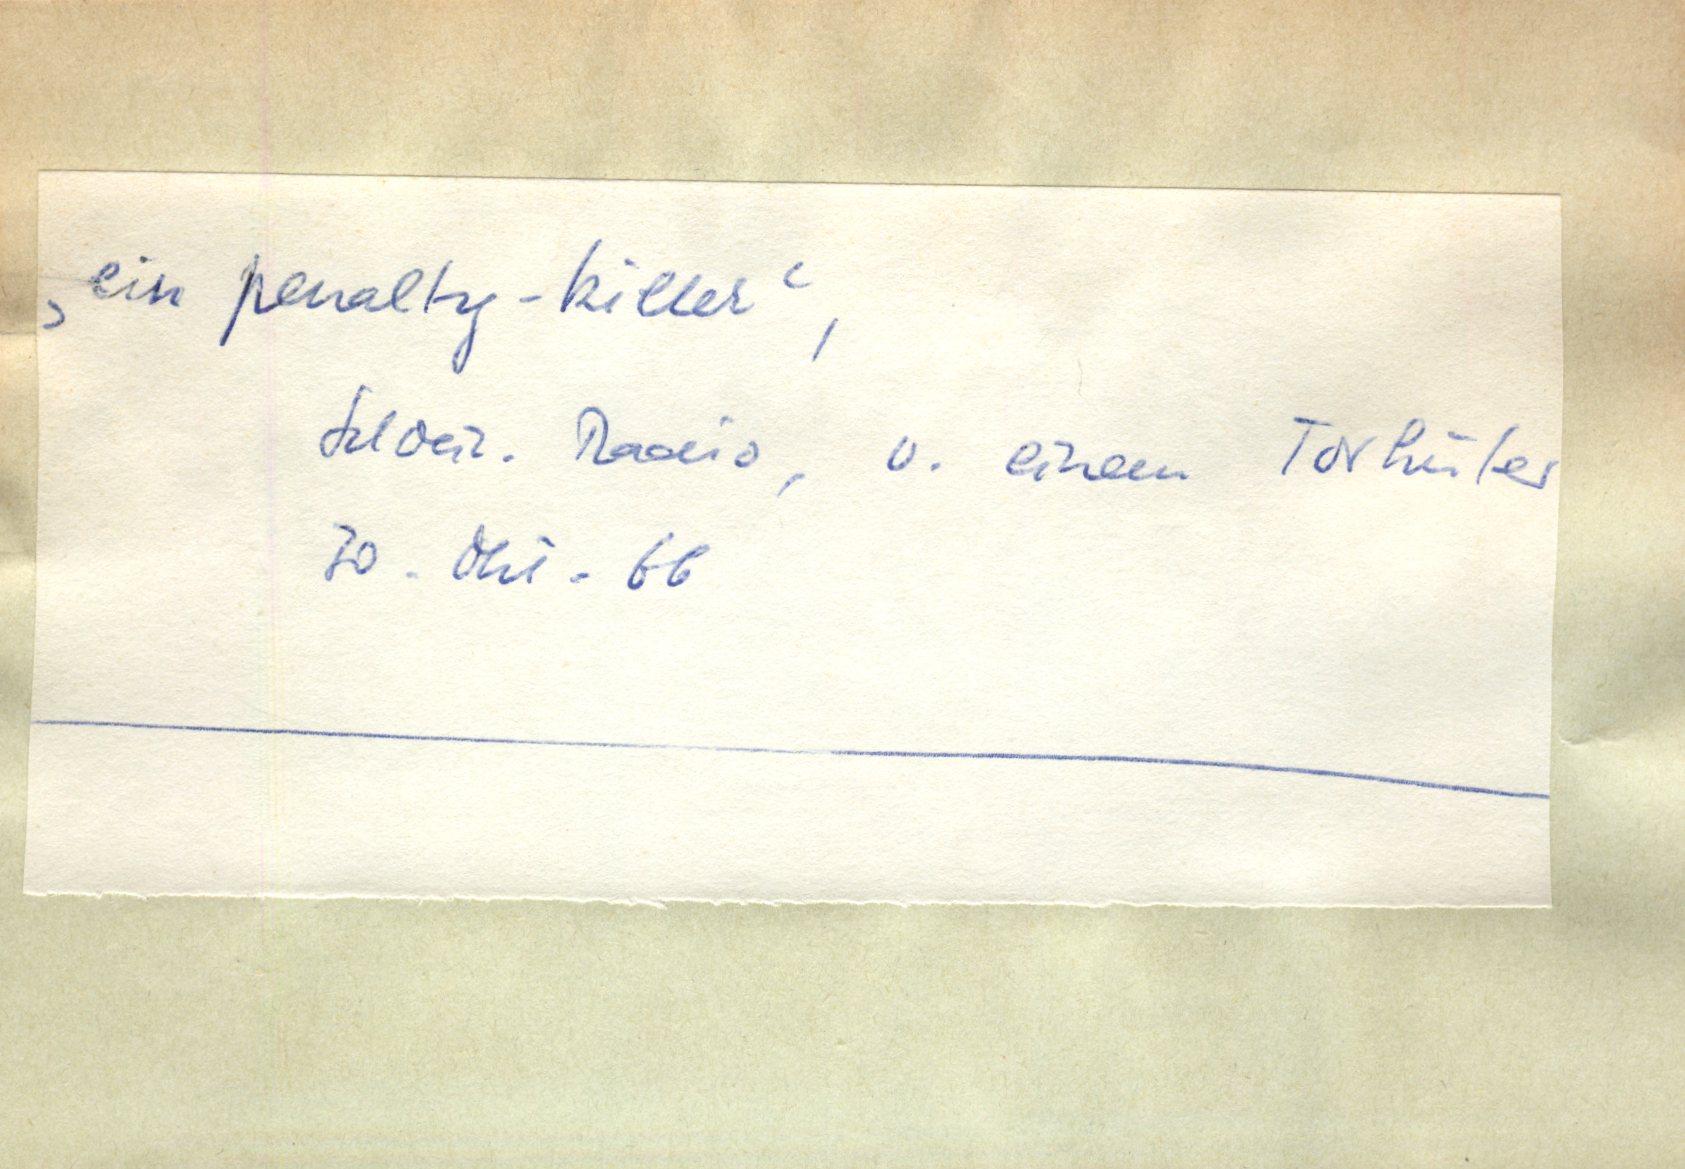 ‚ein penalty-killer‘,
Schweiz. Radio, v. einem Torhüter
30. Okt. 66